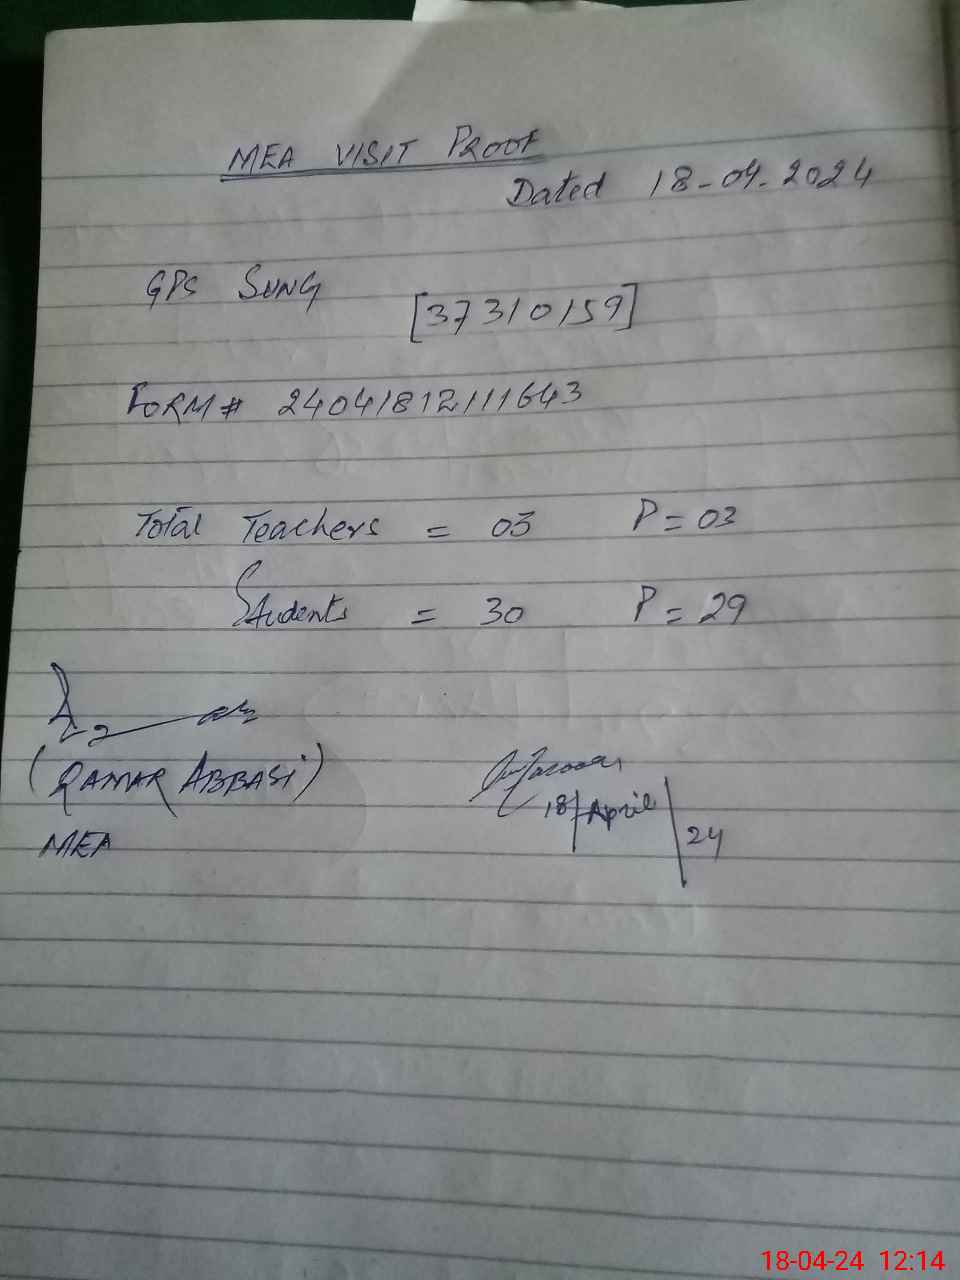 MEA VISIT PROOF
Dated 18-04-2024
GPS SUNG
[37310159]
FORM # 24041812111643
Total Teachers = 03 P = 03
Students = 30 P = 29
(QAMAR ABBASI)
MEA
18/April/24
18-04-24 12:14